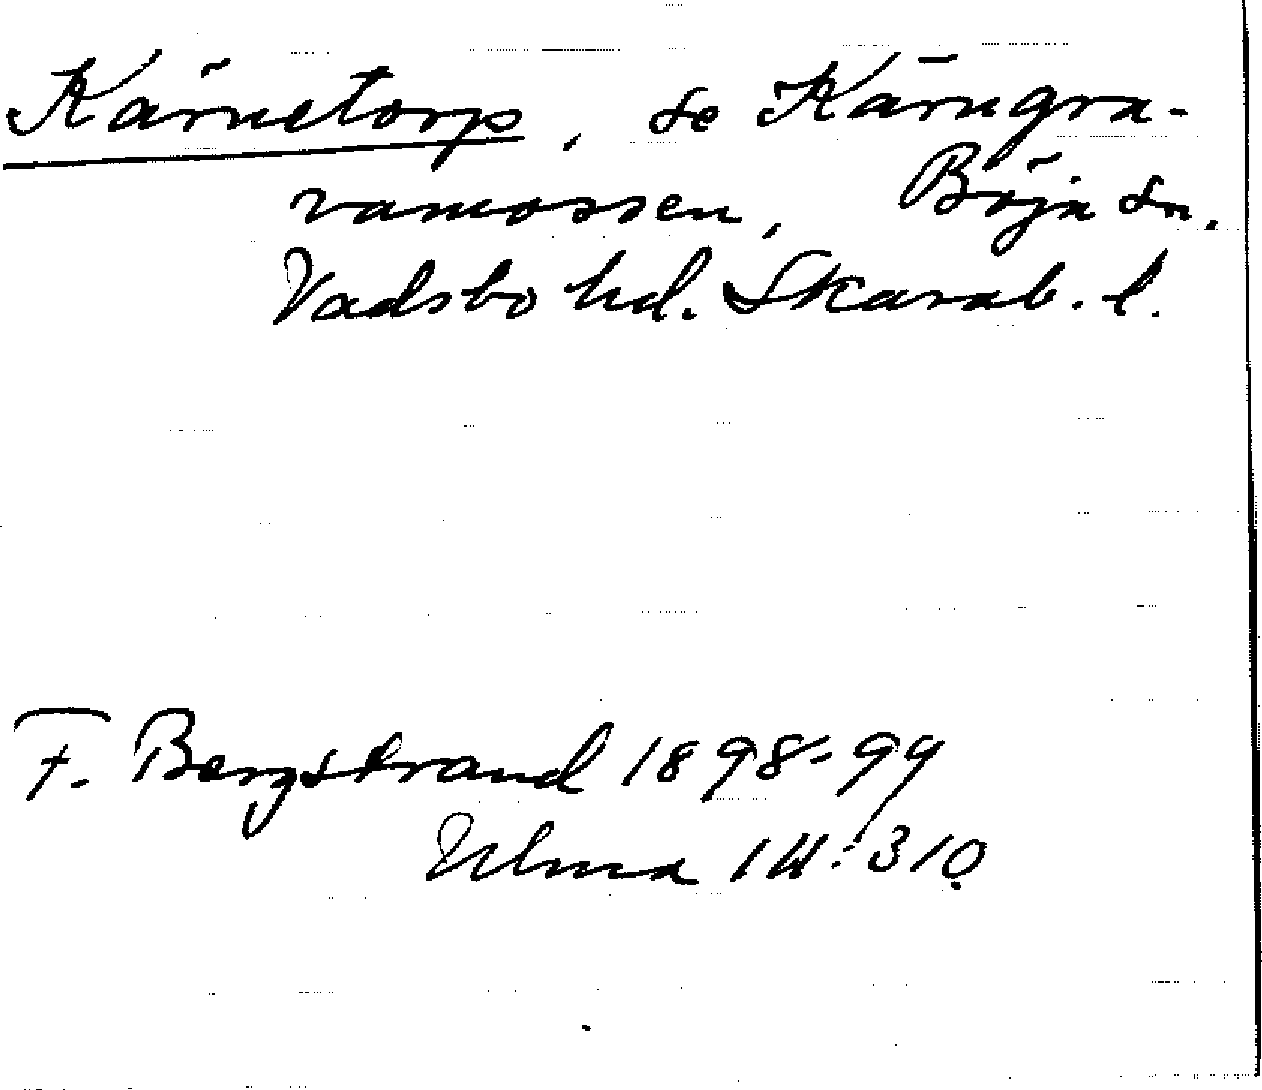 Kärnetorp, se Kärngra-
vamossen, Böja sn.
Vadsbo hd. Skarab. l.
F. Bergstrand 1898-99
Ulma 111:310.